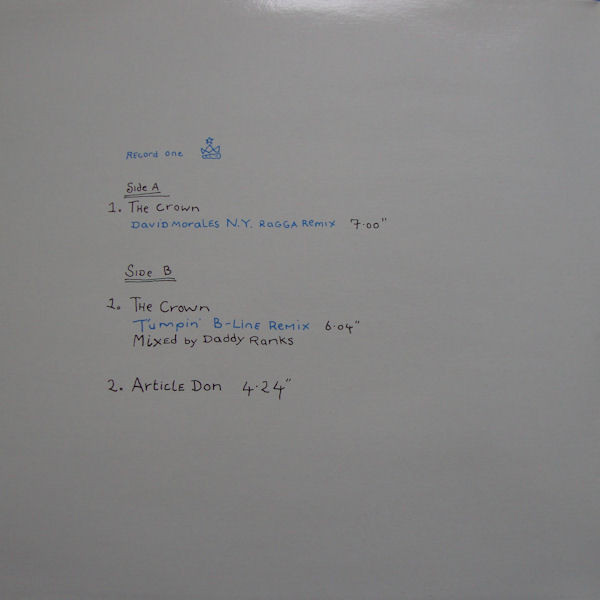 Record one
Side A
1. The Crown
David Morales N.Y. Ragga Remix 7·00"
Side B
1. The Crown
T'umpin' B-Line Remix 6·04"
Mixed by Daddy Ranks
2. Article Don 4·24"